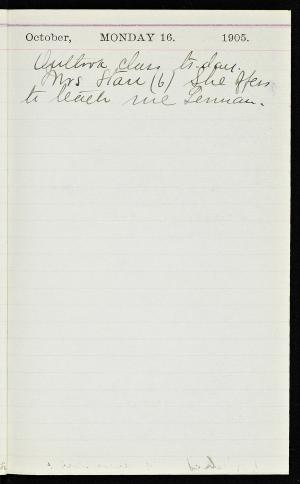 October, MONDAY 16. 1905.
Outlook class to-day.
Mrs Starr (6) She offers
to teach me German.